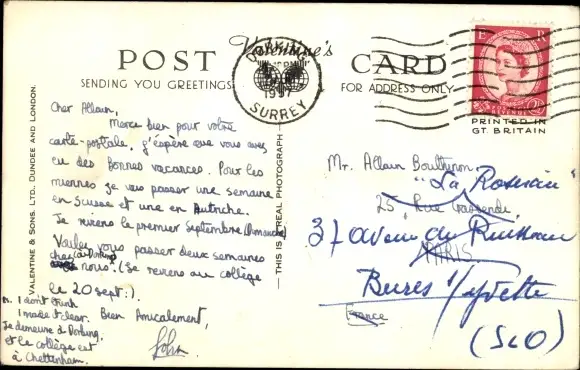 POST Valentine's CARD
SENDING YOU GREETINGS FOR ADDRESS ONLY
DORKING
1957
SURREY
E R
PRINTED IN
GT. BRITAIN
VALENTINE & SONS, LTD. DUNDEE AND LONDON.
THIS IS A REAL PHOTOGRAPH
Cher Allain,
Merci bien pour votre
carte-postale. J'éspère que vous avez
eu des bonnes vacances. Pour les
miennes je vais passer une semaine
en Suisse et une en Autriche.
Je reviens le premier Septembre (Dimanche)
Voulez vous passer deux semaines
chez (à Dorking) nous? (Je reviens au collège
le 20 sept:).
Bien Amicalement,
John
I don't think
I made it clear.
Je demeure à Dorking.
et le collège est
à Cheltenham.
Mr. Allain
25, Rue Gassendi
PARIS
France
"La
37 avenue du Ruisseau
Bures s/Yvette
(S&O)